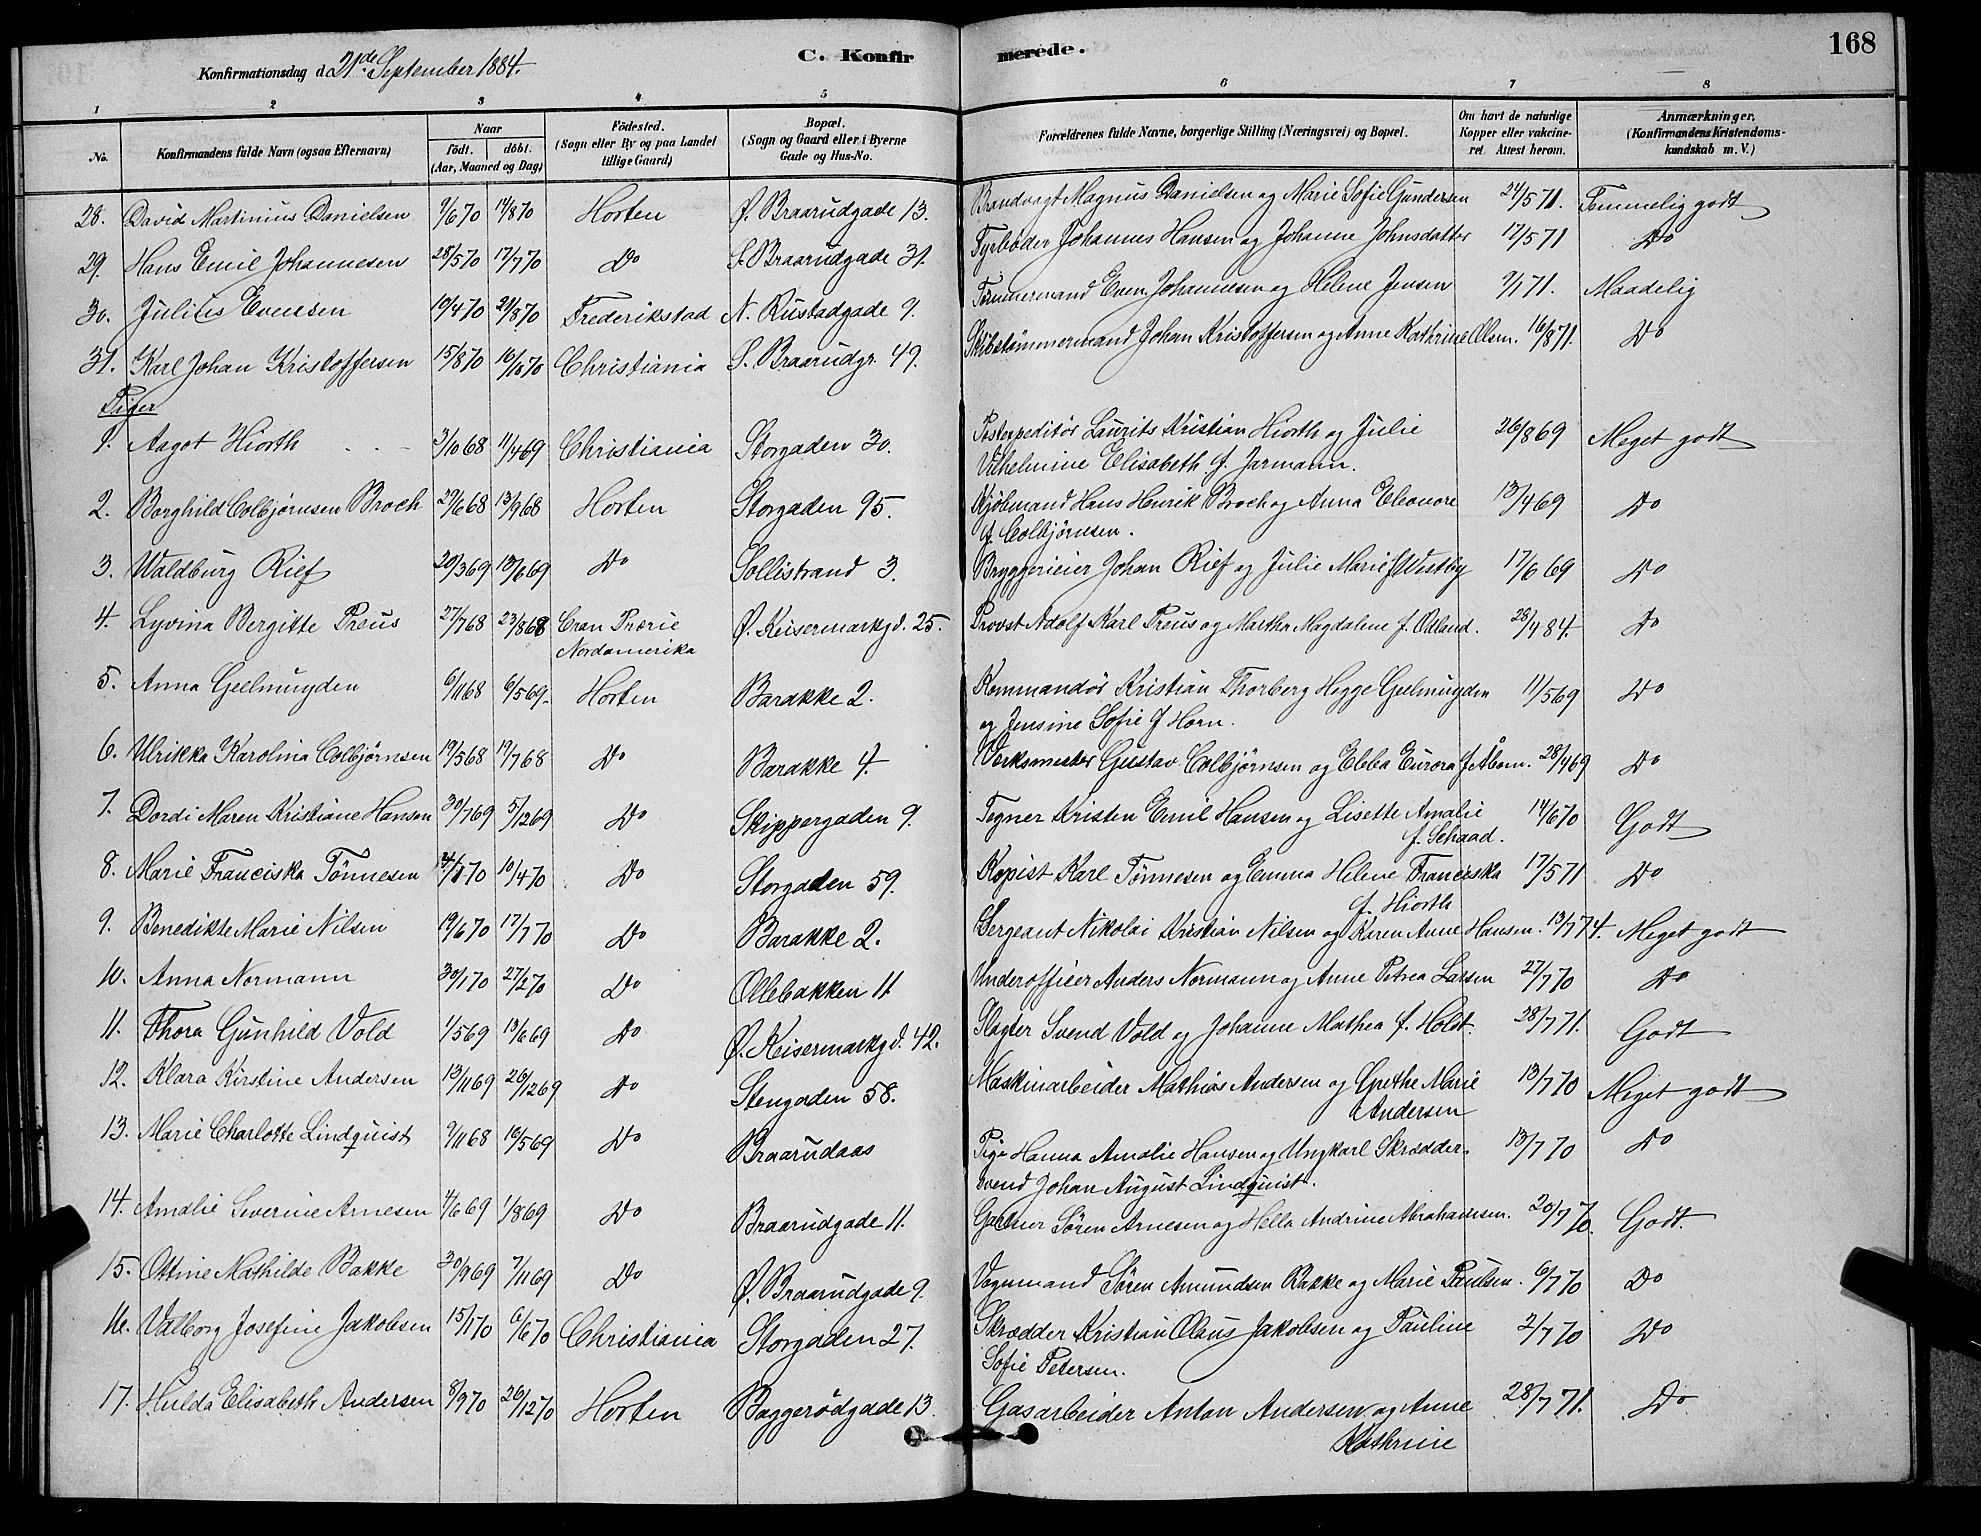 Konfirmationsdag d. 21de September 1884.
C. Konfirmerede.
168
1 2 3 4 5 6 7 8
No.
Konfirmandens fulde Navn (ogsaa Efternavn)
Naar
födt. döbt.
(Aar, Maaned og Dag)
Födested.
(Sogn eller By og paa Landet
tillige Gaard)
Bopæl.
(Sogn og Gaard eller i Byerne
Gade og Hus-No.
Forældrenes fulde Navne, borgerlige Stilling (Næringsvei) og Bopæl.
Om havt de naturlige
Kopper eller vakcine-
ret. Attest herom.
Anmærkninger.
(Konfirmandens Kristendoms-
kundskab m. V.)
28. David Martinius Danielsen 9/6 70 14/8 70 Horten Ø. Braarudgade 13. Brandvagt Magnus Danielsen og Marie Sofie Gundersen 24/5 71. Temmelig godt
29. Hans Emil Johannesen 28/5 70 17/7 70 Do S. Braarudgade 31. Fyrbøder Johannes Hansen og Johanne Johnsdatter 17/5 71 Do
30. Julius Evensen 19/4 70 21/8 70 Frederikstad N. Rustadgade 9. Tømmermand Even Johannesen og Helene Jensen 9/1 71. Maadelig
31. Karl Johan Kristoffersen 15/8 70 16/10 70 Christiania S. Braarudgr. 49. Skibstømmermand Johan Kristoffersen og Anne Kathrine Olsen. 16/8 71. Do
Piger
1. Aagot Hiorth 3/10 68 11/4 69 Christiania Storgaden 30. Postexpeditør Laurits Kristian Hiorth og Julie 26/8 69 Meget godt
Vilhelmine Elisabeth f. Jarmann.
2. Borghild Colbjørnsen Broch 29/6 68 13/9 68 Horten Storgaden 95. Kjøbmand Hans Henrik Broch og Anna Eleonore 13/4 69 Do
f. Colbjørnsen.
3. Waldburg Rief 20/3 69 13/6 69 Do Sollistrand 3. Bryggerieier Johan Rief og Julie Marie f. Westby 17/6 69 Do
4. Lyvina Bergitte Preus 27/7 68 23/8 68 Cran Prærie Ø. Keisermarkgd. 25. Provst Adolf Karl Preus og Martha Magdalene f. Odland. 28/4 84. Do
Nordamerika
5. Anna Geelmuyden 6/11 68 6/5 69. Horten Barakke 2. Kommandør Kristian Thorberg Hegge Geelmuyden 11/5 69 Do
og Jensine Sofie f. Horn.
6. Ulrikka Karolina Colbjørnsen 19/5 68 19/7 68 Do Barakke 4. Værksmester Gustav Colbjørnsen og Ebba Eurora f. Åbom. 28/4 69 Do
7. Dordi Maren Kristiane Hansen 30/7 69 5/12 69 Do Skippergaden 9. Tegner Kristen Emil Hansen og Lisette Amalie 14/6 70 Godt
f. Schaad.
8. Marie Franciska Tönnesen 24/1 70 10/4 70 Do Storgaden 59. Kopist Karl Tönnesen og Emma Helene Franciska 17/5 71 Do
f. Hiorth
9. Benedikte Marie Nilsen 19/6 70 17/7 70 Do Barakke 2. Sergeant Nikolai Kristian Nilsen og Karen Anne Hansen. 13/7 74. Meget godt
10. Anna Normann 30/1 70 27/2 70 Do Ollebakken 11 Underofficer Anders Normann og Anne Petrea Larsen 27/7 70 Do
11. Thora Gunhild Vold 1/5 69 13/6 69 Do Ø. Keisermarkgd. 42. Slagter Svend Vold og Johanne Mathea f. Holst. 28/7 71. Godt
12. Klara Kirstine Andersen 13/11 69 26/12 69 Do Stengaden 58. Maskinarbeider Mathias Andersen og Grethe Marie 13/7 70 Meget godt
Andersen
13. Marie Charlotte Lindquist 9/11 68 16/5 69 Do Braarudaas Pige Hanna Amalie Hansen og Ungkarl Skrædder- 13/7 70 Do
svend Johan August Lindquist.
14. Amalie Severine Arnesen 4/6 69 1/8 69 Do Braarudgade 11. Gartner Søren Arnesen og Hella Andrine Abrahamsen. 20/7 70. Godt.
15. Ottine Mathilde Bakke 30/9 69 7/11 69 Do Ø. Braarudgade 9. Vognmand Søren Amundsen Bakke og Marie Paulsen. 6/7 70 Do
16. Valborg Josefine Jakobsen 15/1 70 6/6 70 Christiania Storgaden 27. Skrædder Kristian Olaus Jakobsen og Pauline 2/7 70 Do
Sofie Petersen.
17. Hulda Elisabeth Andersen 8/9 70 26/12 70 Horten Baggerødgade 13. Gasarbeider Anton Andersen og Anne 28/7 71. Do
Kathrine